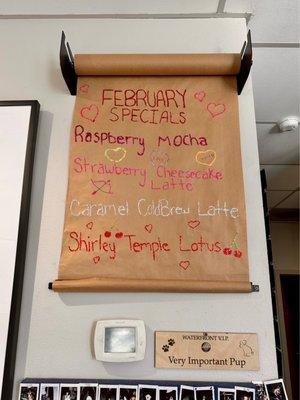 FEBRUARY
SPECIALS
Raspberry Mocha
Strawberry Cheesecake
Latte
Caramel ColdBrew Latte
Shirley Temple Lotus
WATERFRONT V.I.P.
Very Important Pup